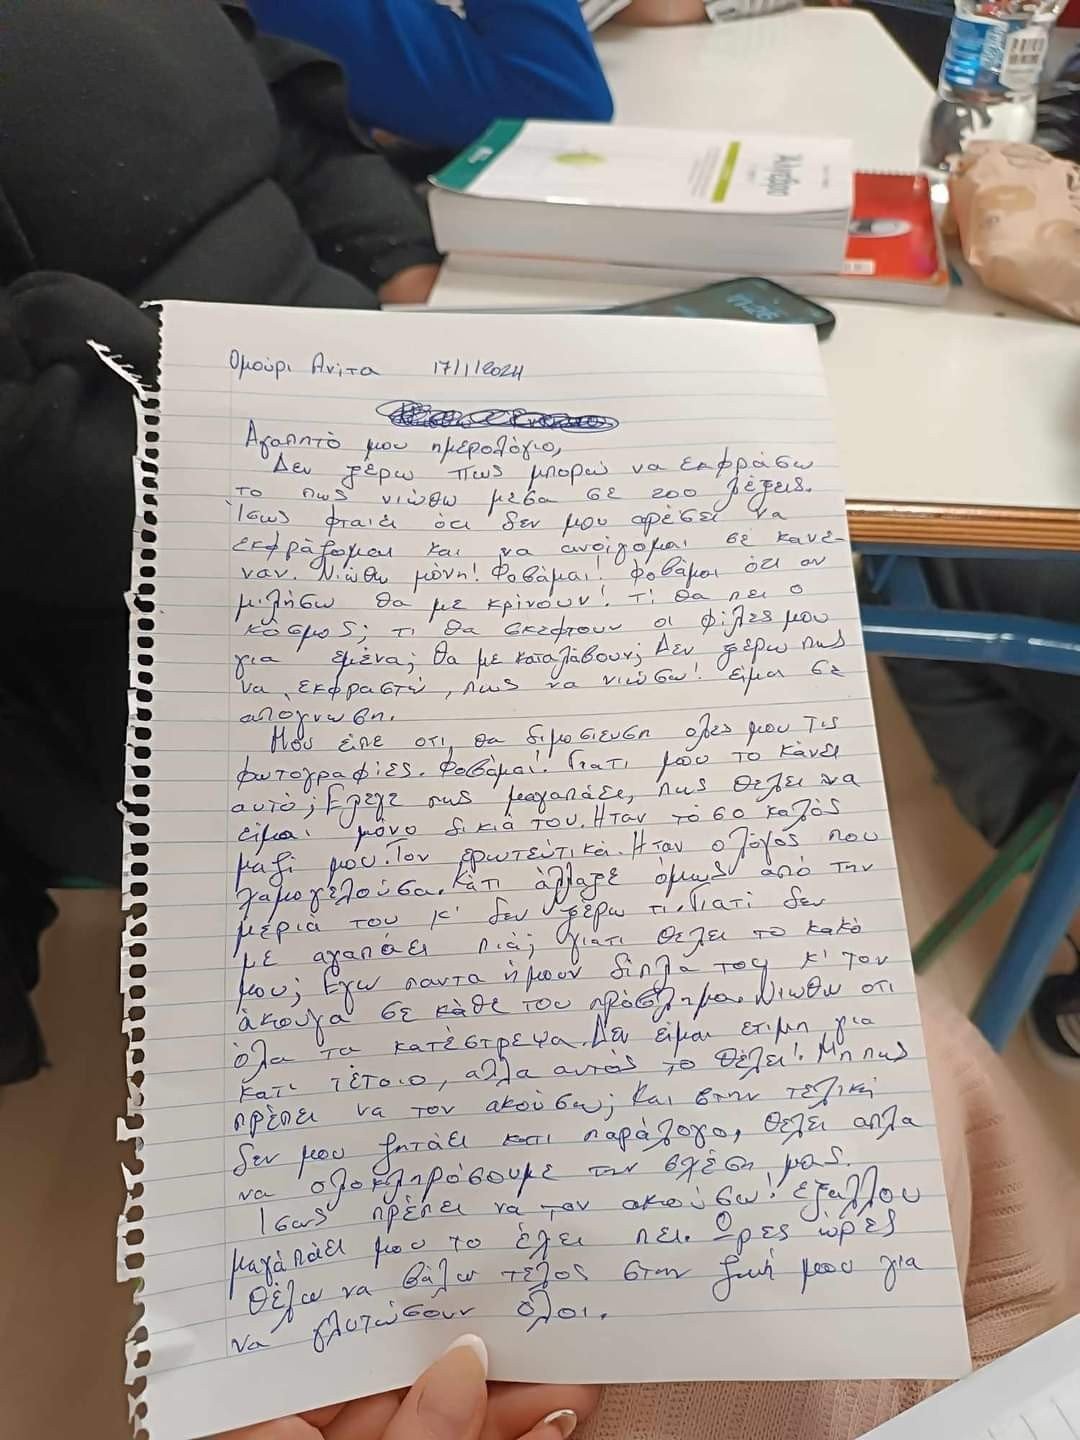 Άλγεβρα
Ομούρι Ανίτα 17/1/2024
Αγαπητό μου ημερολόγιο,
Δεν ξέρω πως μπορώ να εκφράσω
το πως νιώθω μέσα σε 200 λέξεις.
Ίσως φταίει ότι δεν μου αρέσει να
εκφράζομαι και να ανοίγομαι σε κανέ-
ναν. Νιώθω μόνη! Φοβάμαι! Φοβάμαι ότι αν
μιλήσω θα με κρίνουν! τί θα πει ο
κόσμος; τι θα σκεφτουν οι φίλες μου
για εμένα; θα με καταλάβουν; Δεν ξέρω πως
να εκφραστώ, πως να νιώσω! είμαι σε
απόγνωση.
Μου είπε οτι θα διμοσιευση ολες μου τις
φωτογραφίες. Φοβάμαι! Γιατι μου το κάνει
αυτό; Έλεγε πως μαγαπάει, πως θέλει να
είμαι μόνο δικιά του. Ηταν τόσο καλός
μαζί μου. Τον ερωτεύτικα. Ηταν ο λόγος που
χαμογελούσα. Κάτι άλλαξε όμως από την
μέριά του κ' δεν ξέρω τι. Γιατί δεν
με αγαπάει πιά; γιατι θέλει το κακό
μου; Εγω παντα ήμουν δίπλα του κ' τον
άκουγα σε κάθε του πρόβλημα. Νιωθω οτι
όλα τα κατέστρεψα. Δεν είμαι ετιμη για
κατι τέτοιο, αλλα αυτός το θέλει! Μηπως
πρέπει να τον ακούσω; Και στην τελική
δεν μου ζητάει κατι παράλογο, θέλει απλα
να ολοκληρόσουμε την σχέση μας.
Ισως πρέπει να τον ακούσω! Εξαλλου
μαγάπάει μου το έχει πει. Ώρες ώρες
θέλω να βάλω τέλος στην ζωή μου για
να γλυτώσουν όλοι.